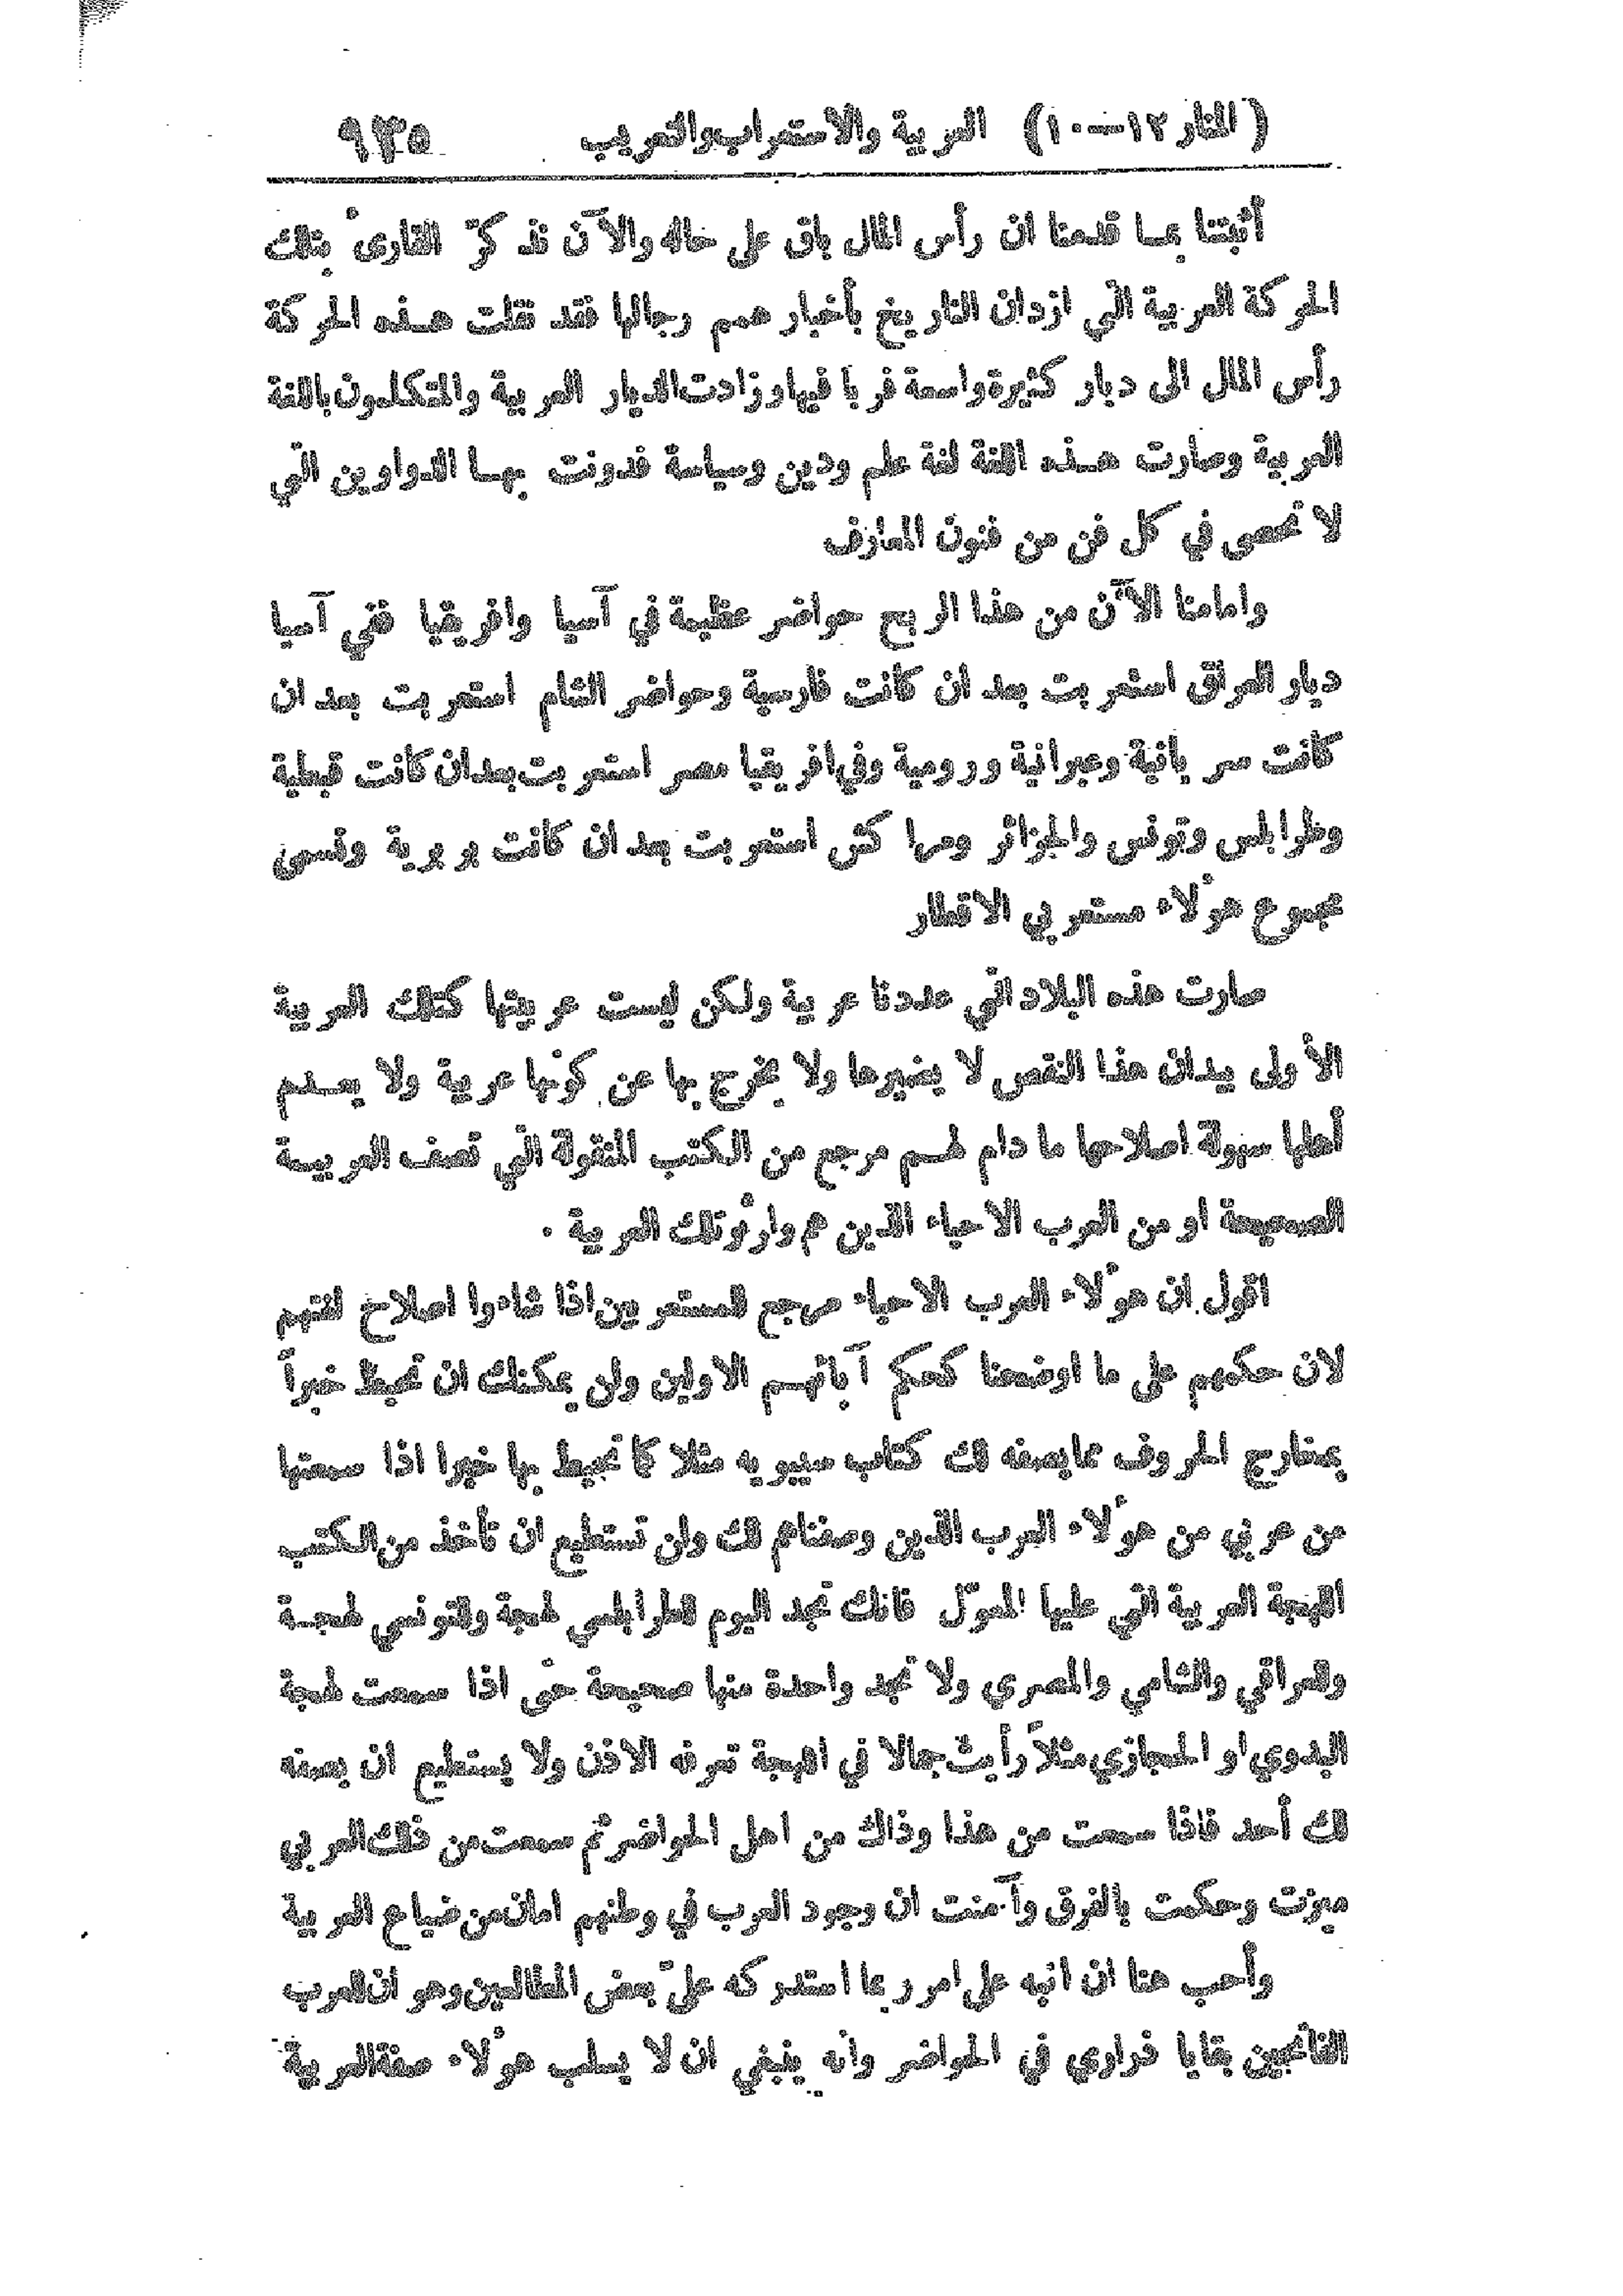 (المنار ١٢—١٠) العربية والاستعراب والتعريب ٩٣٥
أثبتنا بما قدمنا ان رأس المال باق على حاله والآن نذكرّ القارئ بتلك
الحركة العربية التي ازدان التاريخ بأخبار همم رجالها فقد نقلت هذه الحركة
رأس المال الى ديار كثيرة واسعة فربا فيها وزادت الديار العربية والمتكلمون باللغة
العربية وصارت هذه اللغة لغة علم ودين وسياسة فدونت بها الدواوين التي
لا تحصى في كل فن من فنون المعارف
وامامنا الآن من هذا الربح حواضر عظيمة في آسيا وافريقيا ففي آسيا
ديار العراق استعربت بعد ان كانت فارسية وحواضر الشام استعربت بعد ان
كانت سريانية وعبرانية ورومية وفي افريقيا مصر استعربت بعد ان كانت قبطية
وطرابلس وتونس والجزائر ومراكش استعربت بعد ان كانت بربرية ونسمي
مجموع هؤلاء مستعربي الاقطار
صارت هذه البلاد التي عددنا عربية ولكن ليست عربيتها كتلك العربية
الأولى بيد ان هذا النقص لا يضيرها ولا يخرج بها عن كونها عربية ولا يعدم
أهلها سهولة اصلاحها ما دام لهم مرجع من الكتب المنقولة التي تصف العربية
الصحيحة او من العرب الاحياء الذين هم وارثو تلك العربية .
اقول ان هؤلاء العرب الاحياء مرجع للمستعربين اذا شاءوا اصلاح لغتهم
لان حكمهم على ما اوضحنا كحكم آبائهم الاولين ولن يمكنك ان تحيط خبراً
بمخارج الحروف مما يصفه لك كتاب سيبويه مثلا كما تحيط بها خبرا اذا سمعتها
من عربي من هؤلاء العرب الذين وصفناهم لك ولن تستطيع ان تأخذ من الكتب
اللهجة العربية التي عليها المعوّل فانك تجد اليوم للطرابلسي لهجة وللتونسي لهجة
وللعراقي والشامي والمصري ولا تجد واحدة منها صحيحة حتى اذا سمعت لهجة
البدوي او الحجازي مثلاً رأيت جمالا في اللهجة تعرفه الاذن ولا يستطيع ان يصفه
لك أحد فاذا سمعت من هذا وذاك من اهل الحواضر ثم سمعت من ذلك العربي
ميزت وحكمت بالفرق وآمنت ان وجود العرب في وطنهم امان من ضياع العربية
وأحب هنا ان انبه على امر ربما استدركه عليّ بعض المطالعين وهو ان للعرب
الفاتحين بقايا ذراري في الحواضر وانه ينبغي ان لا يسلب هؤلاء صفة العربية